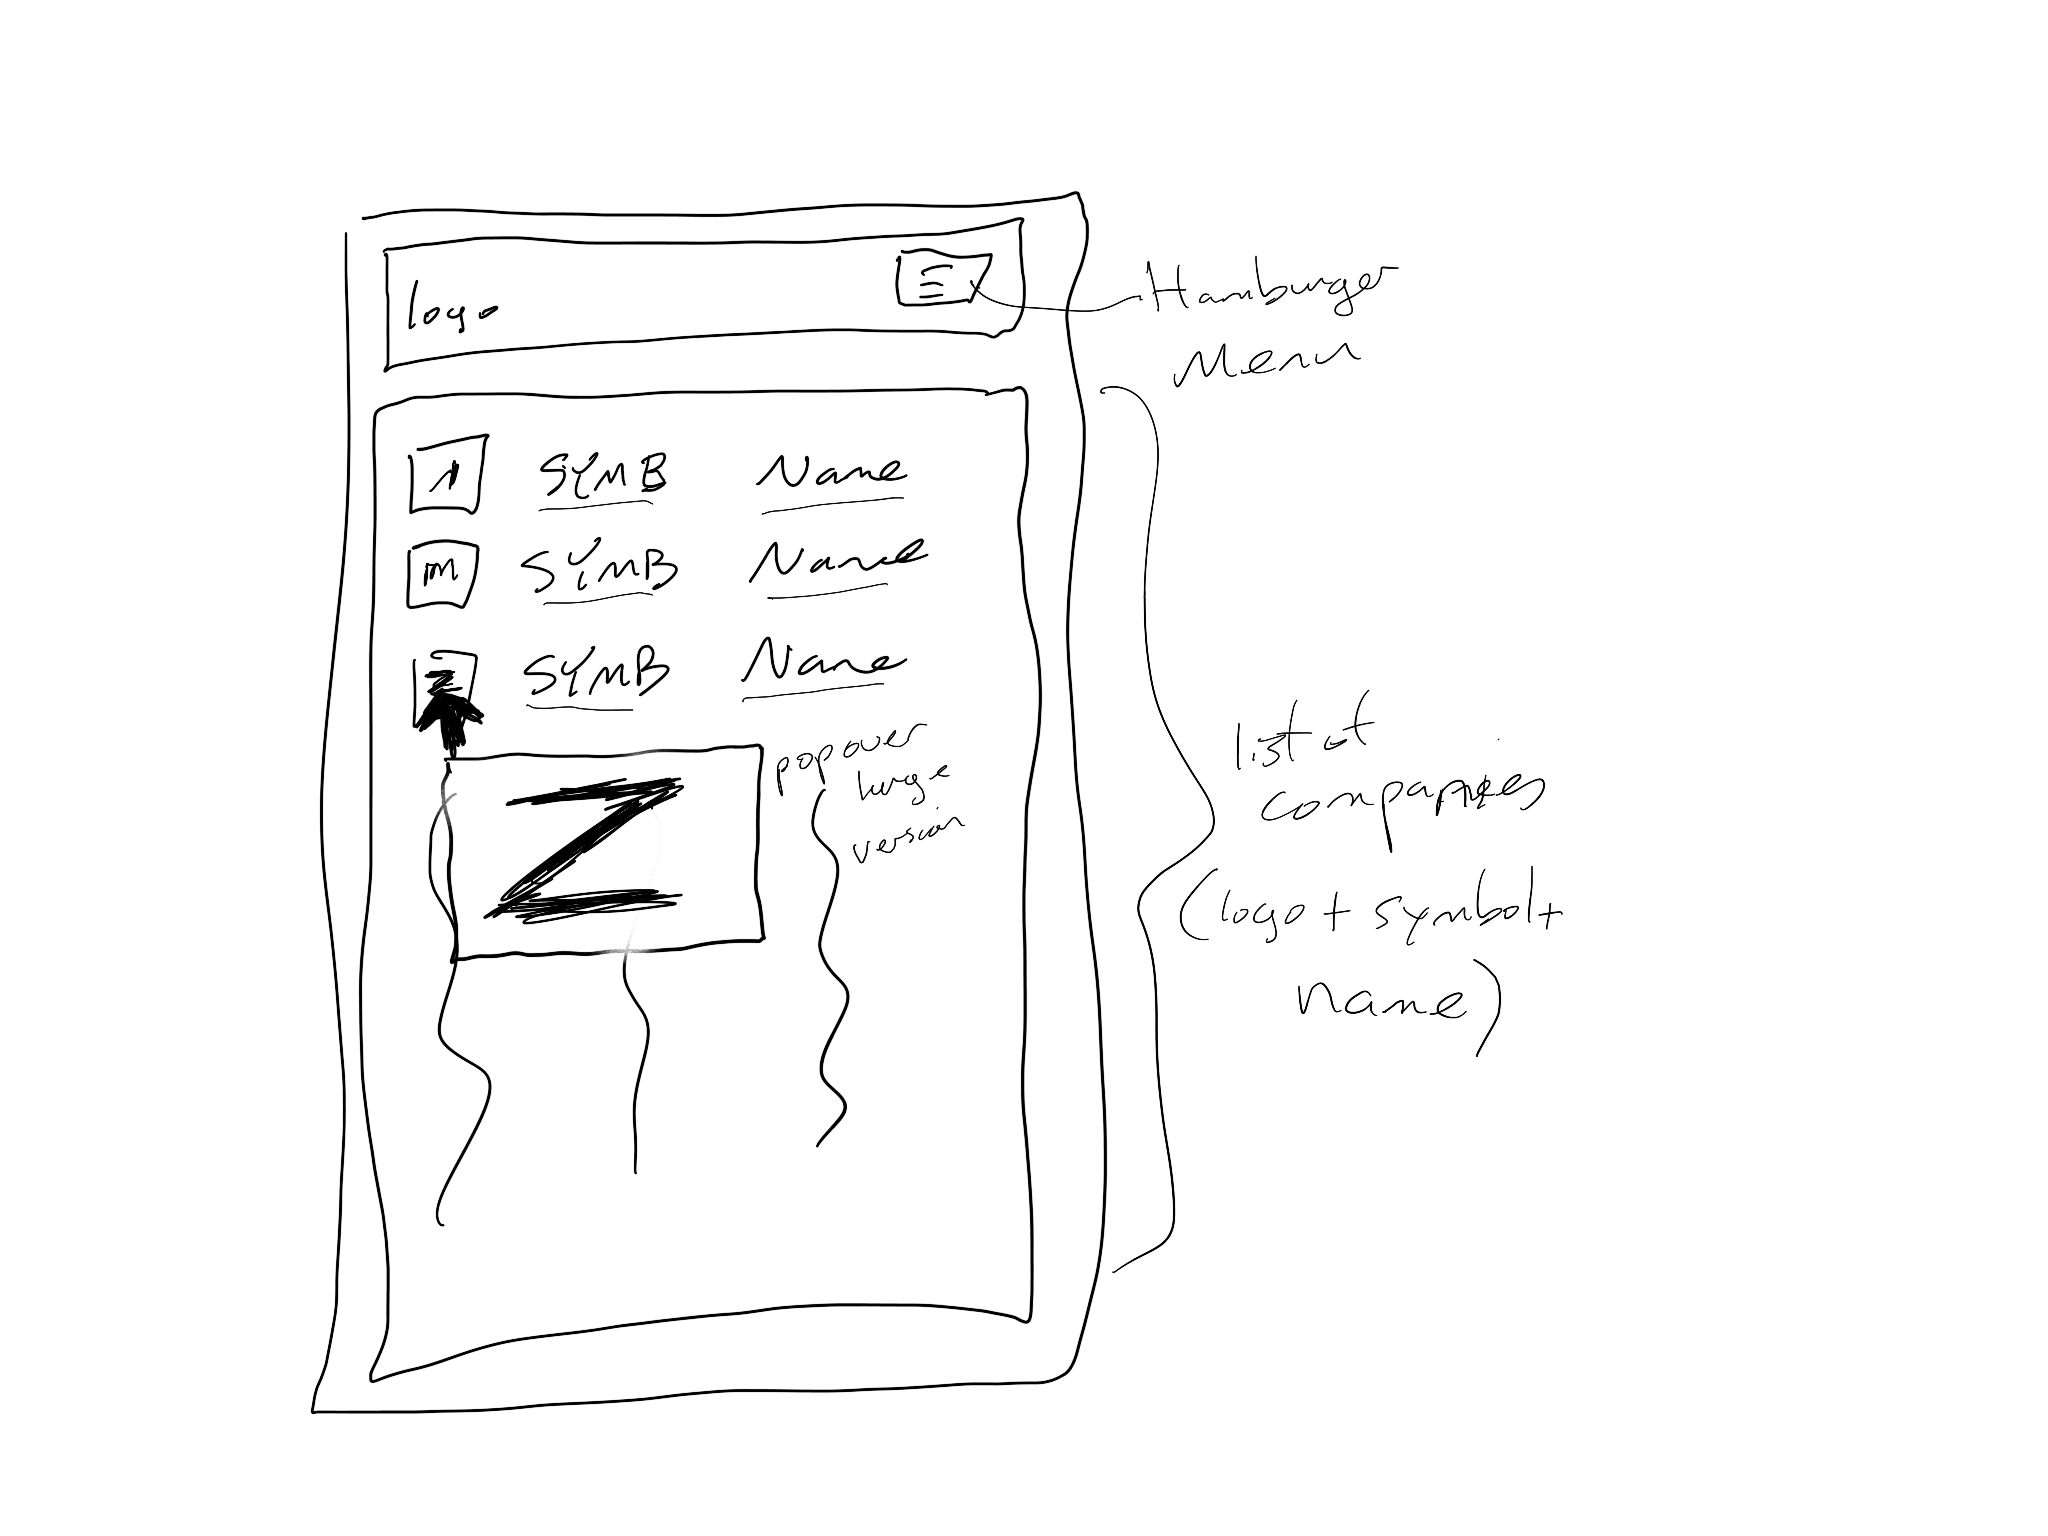 logo
Hamburger
Menu
SYMB Name
m SYMB Name
Z SYMB Name
popover
large
version
Z
list of
companies
(logo + symbol +
name)